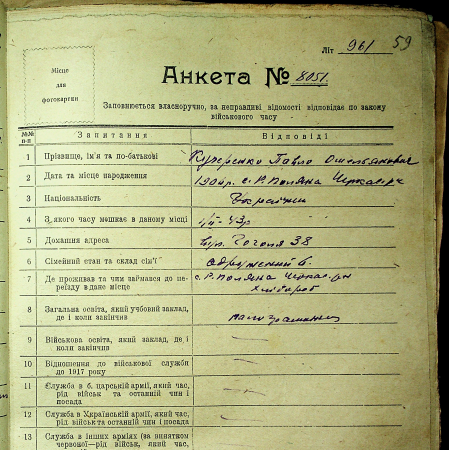 Літ 961 59
Місце
для
фотокартки
Анкета № 8051
Заповнюється власноручно, за неправдиві відомості відповідає по закону
військового часу
№№
п-п
Запитання
Відповіді
1 Прізвище, ім'я та по-батькові Кучеренко Павло Омелянович
2 Дата та місце народження с. Р. Поляна
3 Національність Українець
4 З якого часу мешкає в даному місці
5 Домашня адреса вул. Гоголя 38
6 Сімейний стан та склад сім'ї одружений
7 Де проживав та чим займався до пе- с. Р. Поляна
реїзду в дане місце хлібороб
8 Загальна освіта, який учбовий заклад,
де і коли закінчив малограмотний
9 Військова освіта, який заклад, де і —
коли закінчив
10 Відношення до військової служби —
до 1917 року
11 Служба в б. царській армії, який час, —
рід військ та останній чин і
посада
12 Служба в Українській армії, який час, —
рід військ та останній чин і посада
13 Служба в інших арміях (за винятком
червоної—рід військ, який час,